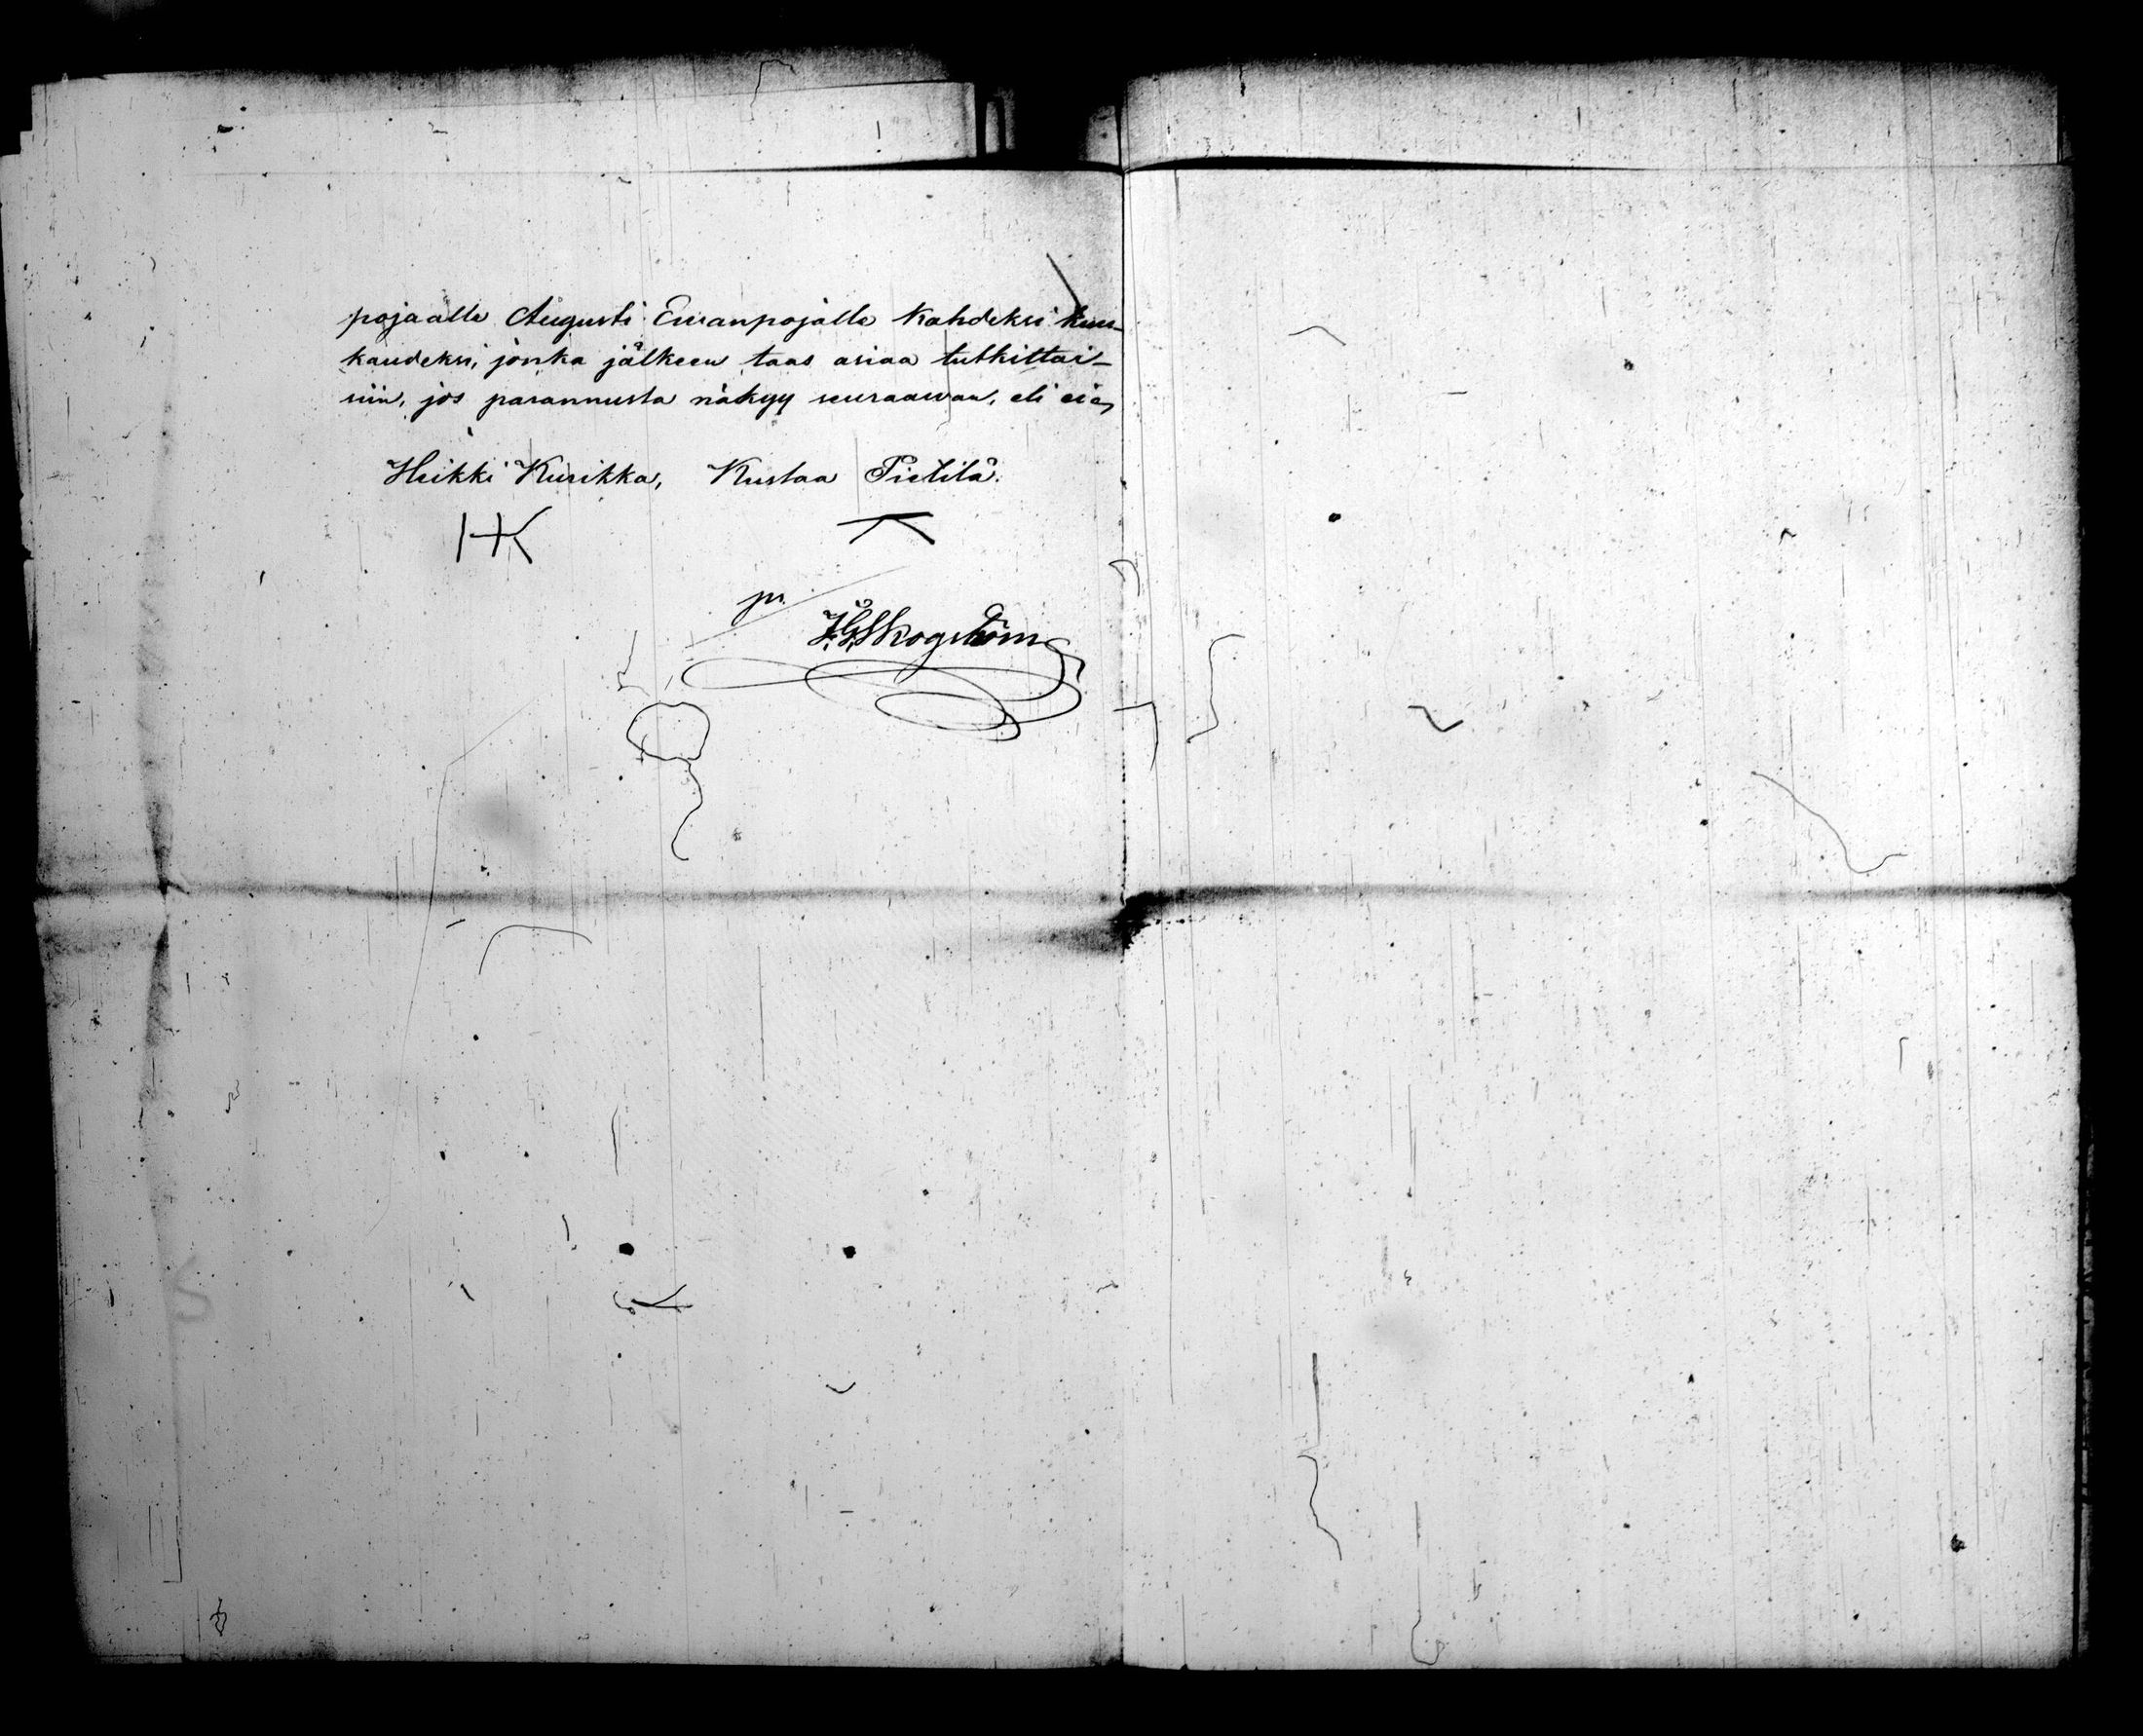 pojaalle Augusti Ewanpojalle kahdeksi kuu-
kaudeksi, jonka jälkeen taas asiaa tutkittai-
siin, jos parannusta näkyy seuraawan, eli ei.
Heikki Kurikka, Kustaa Pietilä.
HK
pr.
J. G. Skogström